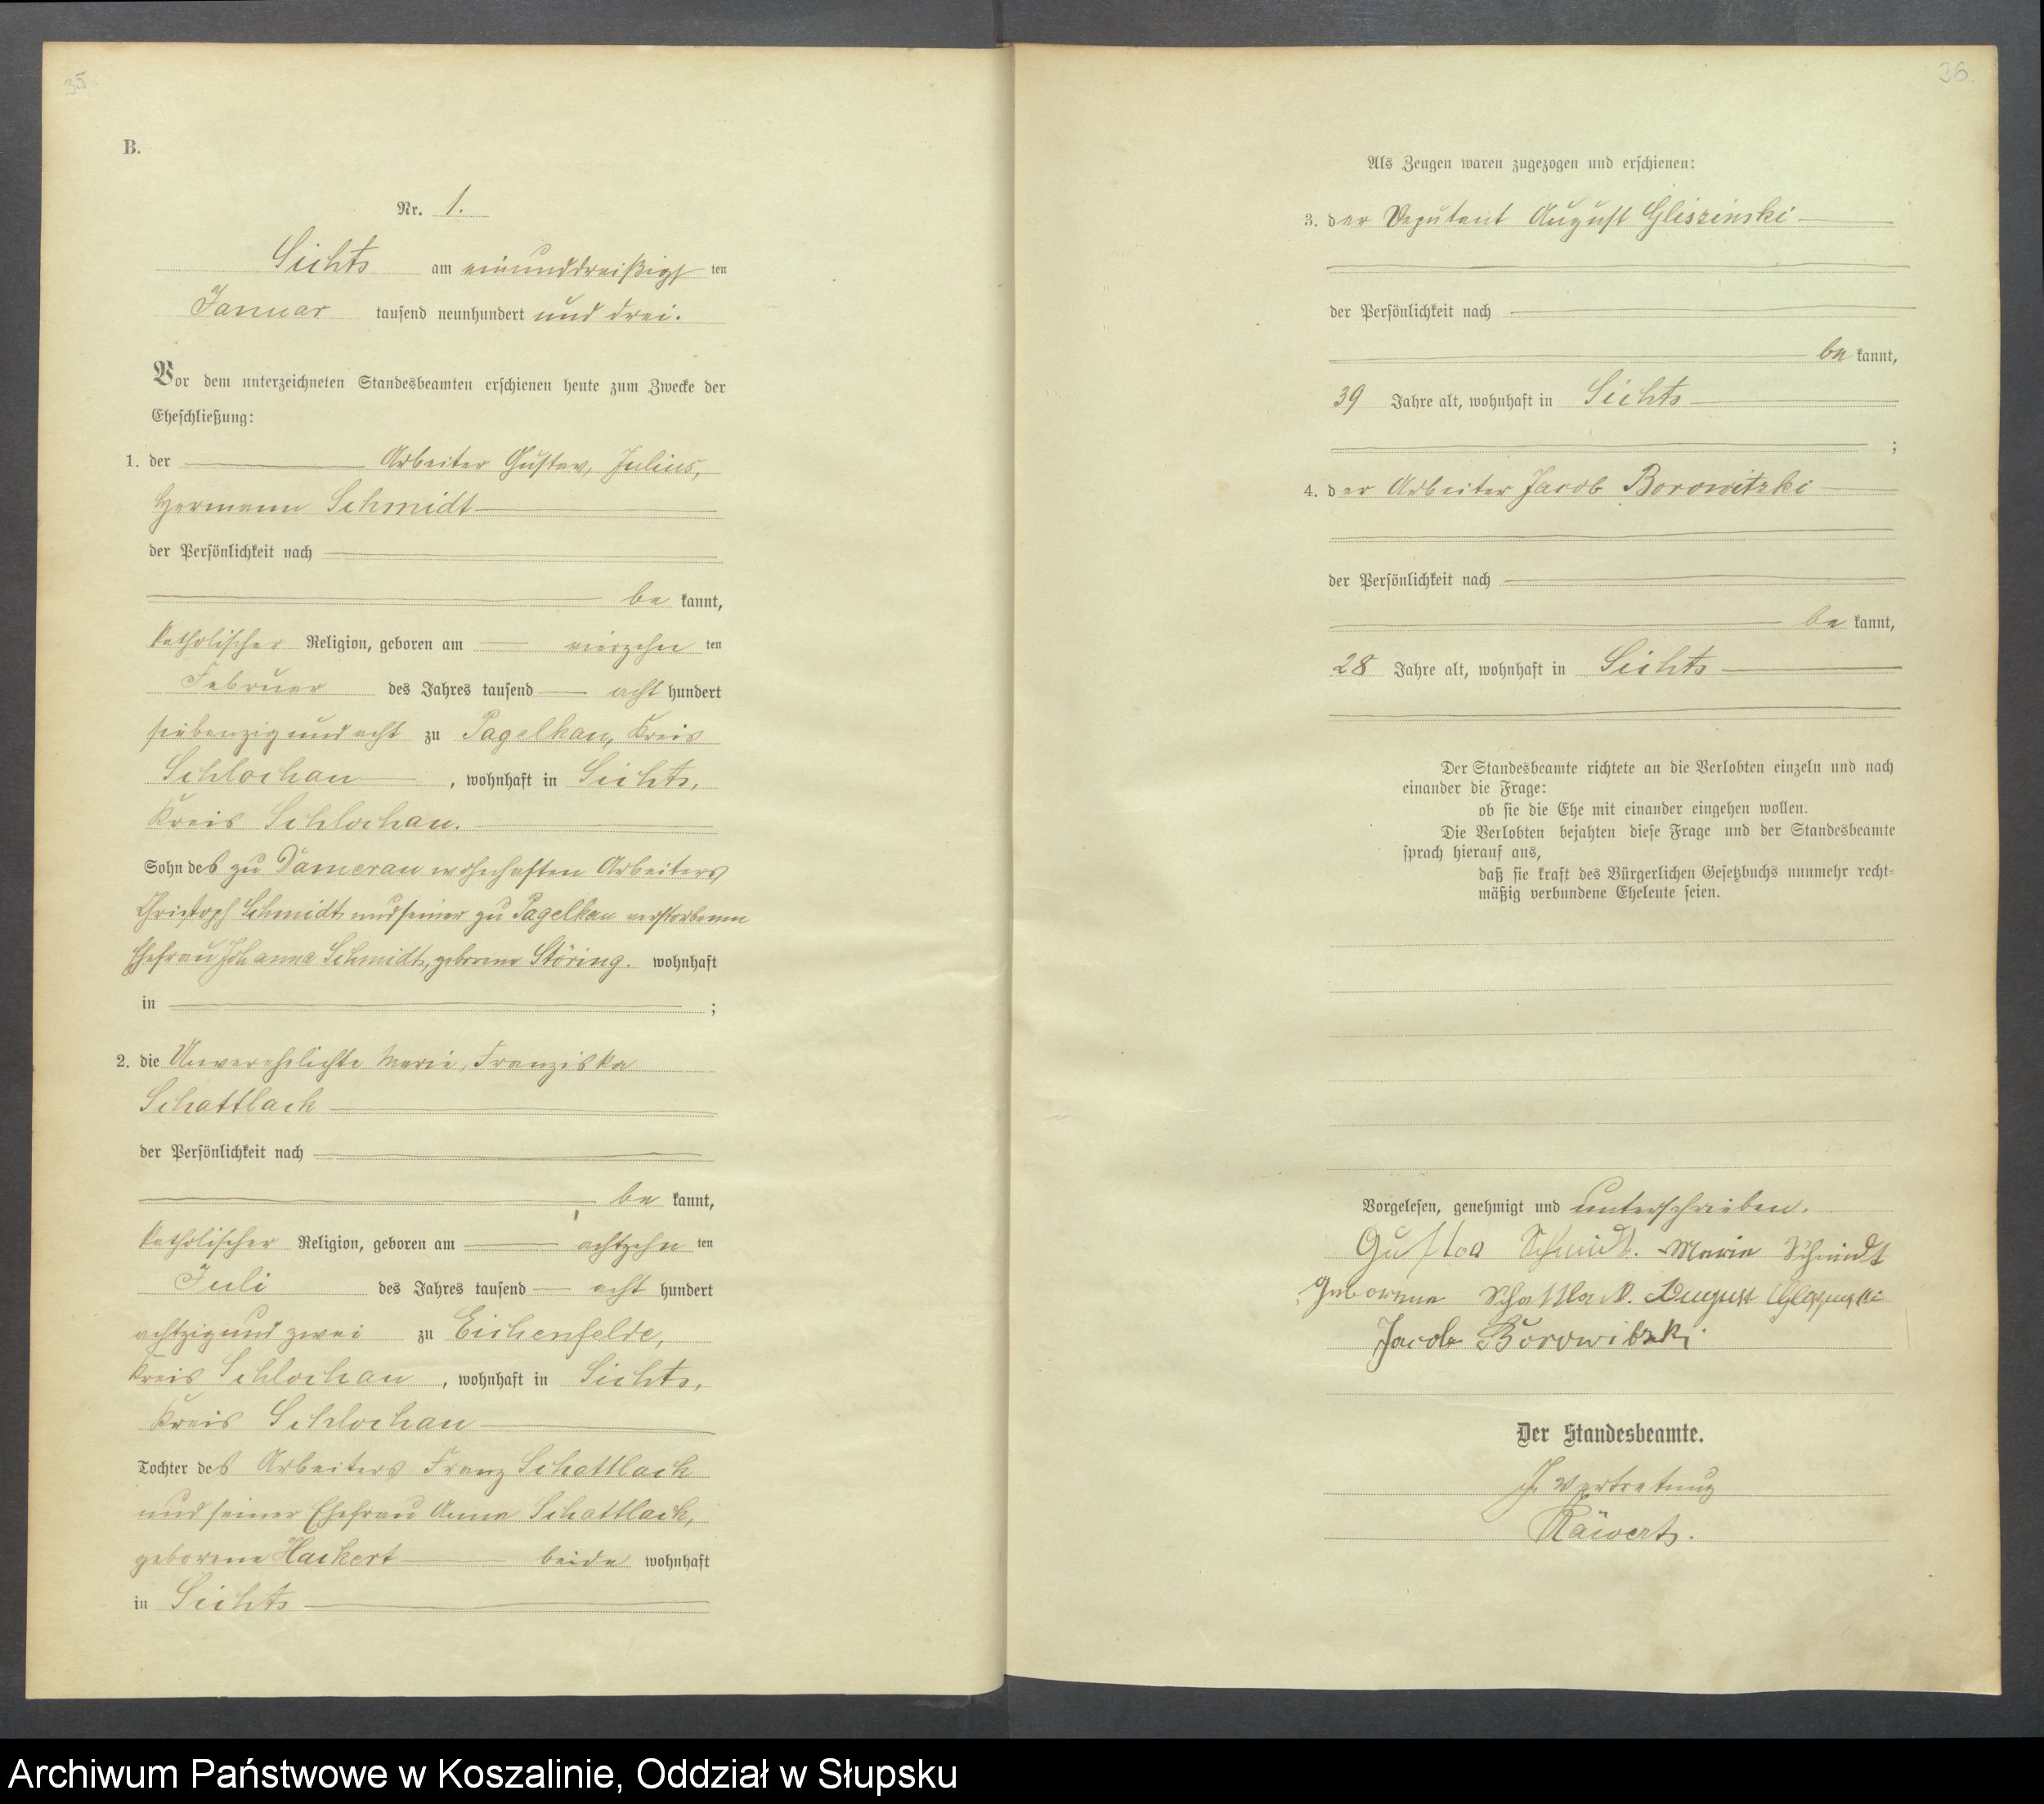 35
B.
Nr. 1.
Sichts am einunddreißigsten
Januar tausend neunhundert und drei.
Vor dem unterzeichneten Standesbeamten erschienen heute zum Zwecke der
Eheschließung:
1. der Arbeiter Gustav, Julius,
Hermann Schmidt
der Persönlichkeit nach
be kannt,
katholischer Religion, geboren am vierzehn ten
Februar des Jahres tausend acht hundert
siebenzig und acht zu Pagelkau, Kreis
Schlochau, wohnhaft in Sichts,
Kreis Schlochau.
Sohn des zu Damerau wohnhaften Arbeiters
Christoph Schmidt und seiner zu Pagelkau verstorbenen
Ehefrau Johanna Schmidt, geborene Störing. wohnhaft
in ;
2. die Unverehelichte Marie, Franziska
Schattlack
der Persönlichkeit nach
be kannt,
katholischer Religion, geboren am achtzehn ten
Juli des Jahres tausend acht hundert
achtzig und zwei zu Eichenfelde,
Kreis Schlochau, wohnhaft in Sichts,
Kreis Schlochau
Tochter des Arbeiters Franz Schattlack
und seiner Ehefrau Anna Schattlack,
geborene Hackert beide wohnhaft
in Sichts
36.
Als Zeugen waren zugezogen und erschienen:
3. der Deputant August Gliszinski
der Persönlichkeit nach
be kannt,
39 Jahre alt, wohnhaft in Sichts
;
4. der Arbeiter Jacob Borowitzki
der Persönlichkeit nach
be kannt,
28 Jahre alt, wohnhaft in Sichts
Der Standesbeamte richtete an die Verlobten einzeln und nach
einander die Frage:
ob sie die Ehe mit einander eingehen wollen.
Die Verlobten bejahten diese Frage und der Standesbeamte
sprach hierauf aus,
daß sie kraft des Bürgerlichen Gesetzbuchs nunmehr recht=
mäßig verbundene Eheleute seien.
Vorgelesen, genehmigt und unterschrieben.
Gustav Schmidt. Marie Schmidt
geborene Schattlack. August
Jacob Borowitzki
Der Standesbeamte.
In Vertretung
Räwert.
Archiwum Państwowe w Koszalinie, Oddział w Słupsku